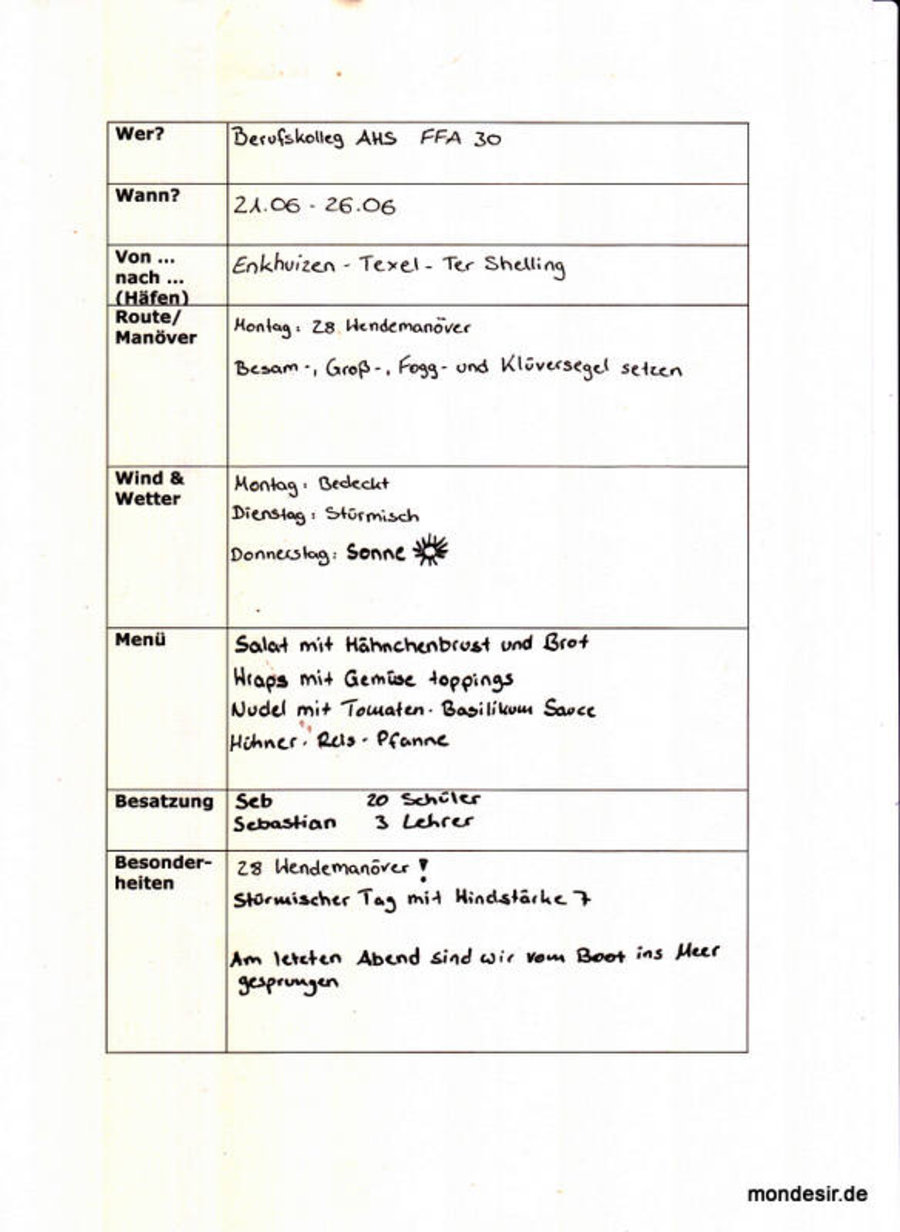 Wer? Berufskolleg AHS FFA 30
Wann? 21.06 - 26.06
Von ... Enkhuizen - Texel - Ter Shelling
nach ...
(Häfen)
Route/ Montag: 28 Wendemanöver
Manöver
Besam-, Groß-, Fogg- und Klüversegel setzen
Wind & Montag: Bedeckt
Wetter Dienstag: Stürmisch
Donnerstag: Sonne
Menü Salat mit Hähnchenbrust und Brot
Wraps mit Gemüse toppings
Nudel mit Tomaten-Basilikum Sauce
Hühner-Reis-Pfanne
Besatzung Seb 20 Schüler
Sebastian 3 Lehrer
Besonder- 28 Wendemanöver!
heiten Stürmischer Tag mit Windstärke 7
Am letzten Abend sind wir vom Boot ins Meer
gesprungen
mondesir.de